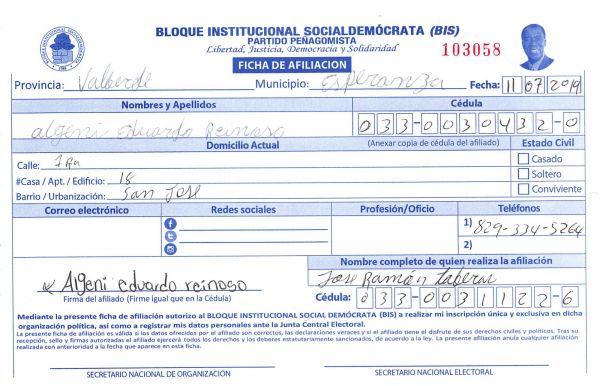 BLOQUE INSTITUCIONAL SOCIALDEMÓCRATA (BIS)
PARTIDO PEÑAGOMISTA
Libertad, Justicia, Democracia y Solidaridad
103058
FICHA DE AFILIACION
Provincia: Valverde Municipio: Esperanza Fecha: 11 07 2019
Nombres y Apellidos Cédula
algeni eduardo Reinoso 033-0030432-0
Domicilio Actual (Anexar copia de cédula del afiliado) Estado Civil
Calle: 7 Ra Casado
#Casa / Apt. / Edificio: 18 Soltero
Barrio / Urbanización: San Jose Conviviente
Correo electrónico Redes sociales Profesión/Oficio Teléfonos
1) 829-334-5264
2)
Nombre completo de quien realiza la afiliación
Algeni eduardo reinoso Jose Ramón Taveras
Firma del afiliado (Firme igual que en la Cédula) Cédula: 033-0031122-6
Mediante la presente ficha de afiliación autorizo al BLOQUE INSTITUCIONAL SOCIAL DEMÓCRATA (BIS) a realizar mi inscripción única y exclusiva en dicha
organización política, así como a registrar mis datos personales ante la Junta Central Electoral.
La presente ficha de afiliación es válida si los datos ofrecidos por el afiliado son correctos, las declaraciones veraces y si el afiliado tiene el disfrute de sus derechos civiles y políticos. Tras su
recepción, sello y firmas autorizadas el afiliado ejercerá todos los derechos y los deberes estatutariamente sancionados, de acuerdo a la ley. La presente afiliación anula cualquier afiliación
realizada con anterioridad a la fecha que aparece en esta ficha.
SECRETARIO NACIONAL DE ORGANIZACIÓN SECRETARIO NACIONAL ELECTORAL